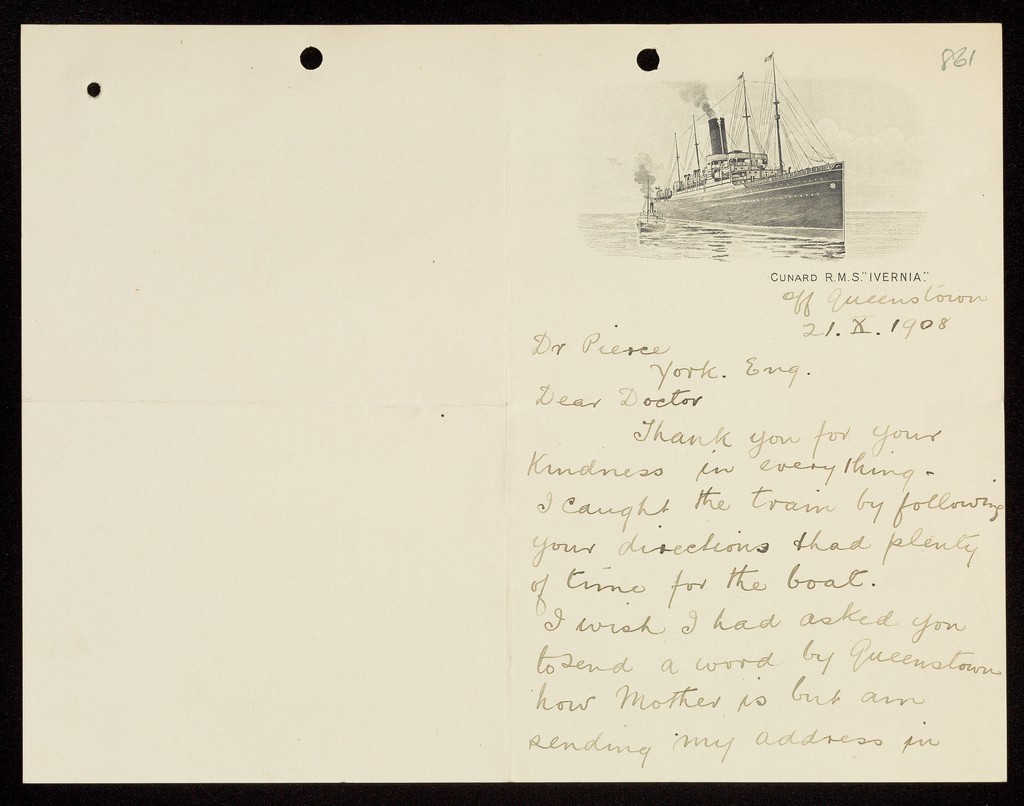 861
CUNARD R.M.S. "IVERNIA."
off Queenstown
21. X. 1908
Dr Pierce
York. Eng.
Dear Doctor
Thank you for your
Kindness in everything -
I caught the train by following
your directions & had plenty
of time for the boat.
I wish I had asked you
to send a word by Queenstown
how Mother is but am
sending my address in